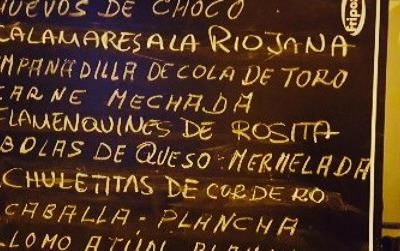 HUEVOS DE CHOCO
CALAMARES A LA RIOJANA
MPANADILLA DE COLA DE TORO
CARNE MECHADA
FLAMENQUINES DE ROSITA
BOLAS DE QUESO-MERMELADA
CHULETITAS DE CORDERO
CABALLA-PLANCHA
LOMO ATÚN